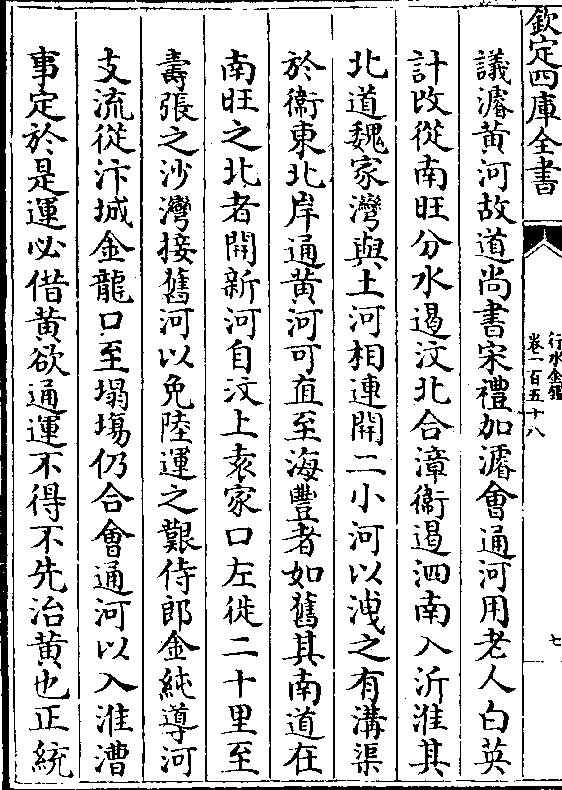 欽定四庫全書
行水金鑑
卷一百五十八
七
議濬黄河故道尚書宋禮加濬會通河用老人白英
計改從南旺分水遏汶北合漳衞遏泗南入沂淮其
北道魏家灣與土河相連開二小河以洩之有溝渠
於衞東北岸通黄河可直至海豐者如舊其南道在
南旺之北者開新河自汶上袁家口左徙二十里至
壽張之沙灣接舊河以免陸運之艱侍郎金純導河
支流從汴城金龍口至塌塲仍合會通河以入淮漕
事定於是運必借黄欲通運不得不先治黄也正統